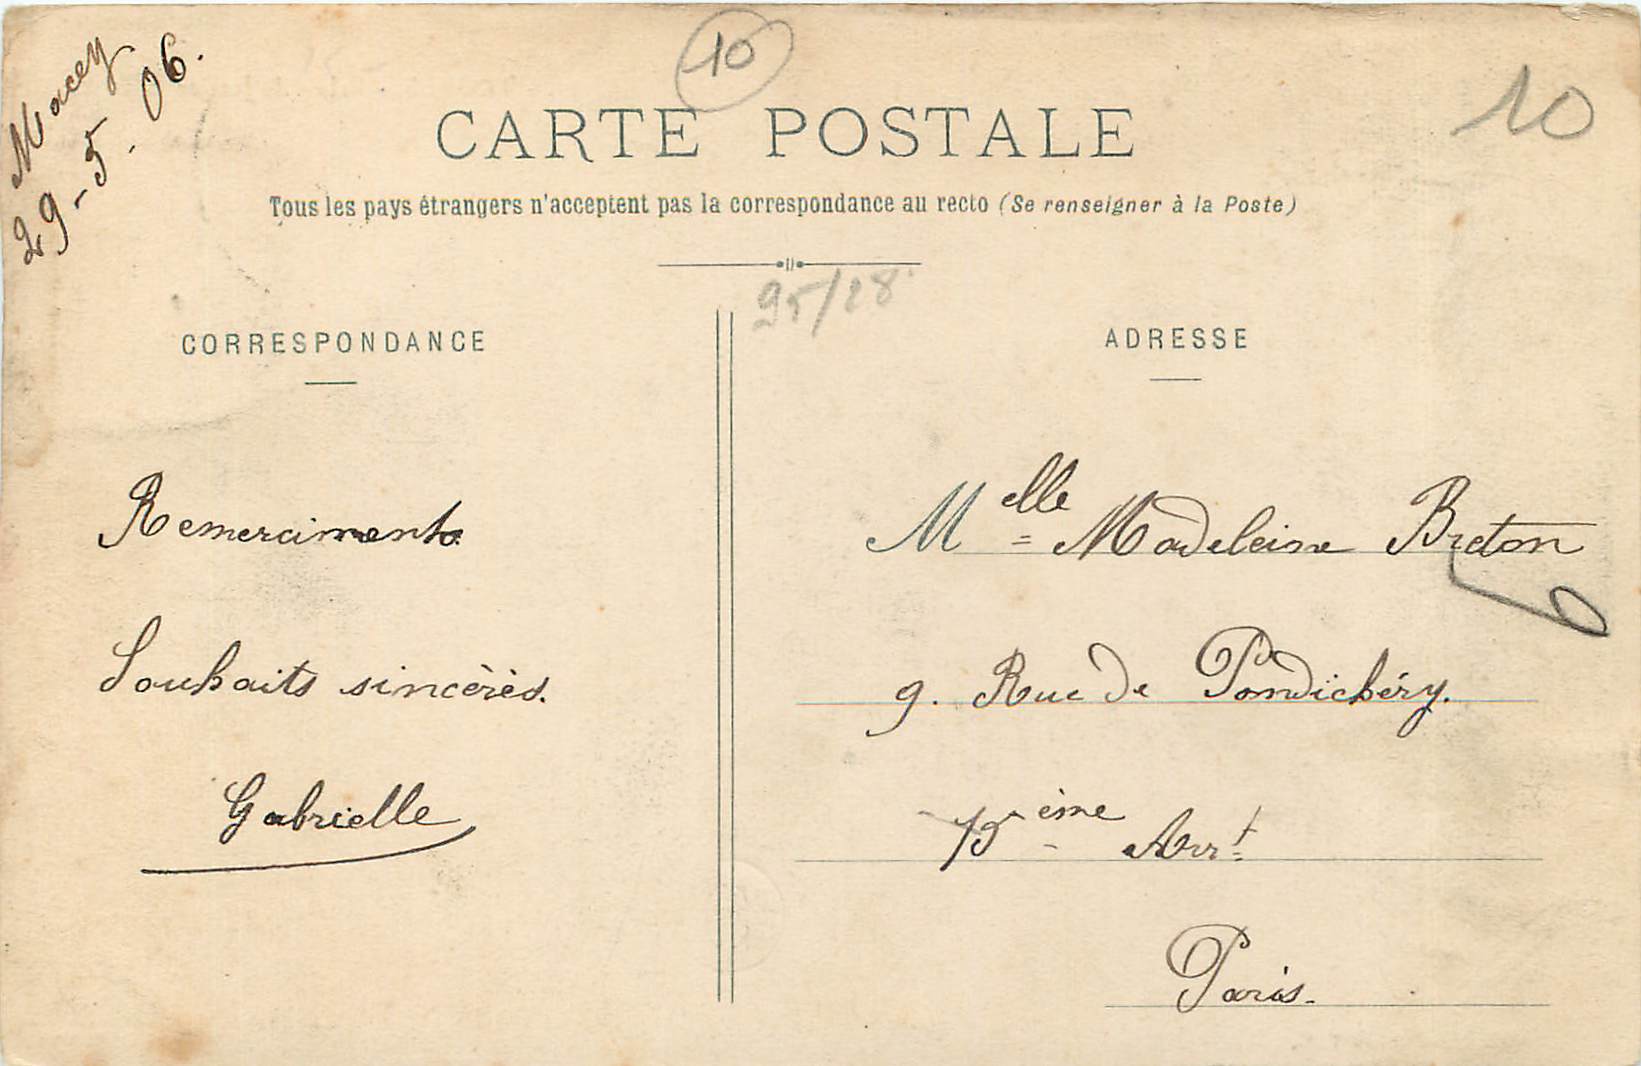 Macey
29-5.06.
10
10
CARTE POSTALE
Tous les pays étrangers n'acceptent pas la correspondance au recto (Se renseigner à la Poste)
95/28
CORRESPONDANCE
Remerciments
Souhaits sincères.
Gabrielle
ADRESSE
Melle Madeleine Breton
9. Rue de Pondichéry.
15ème Arrt
Paris.